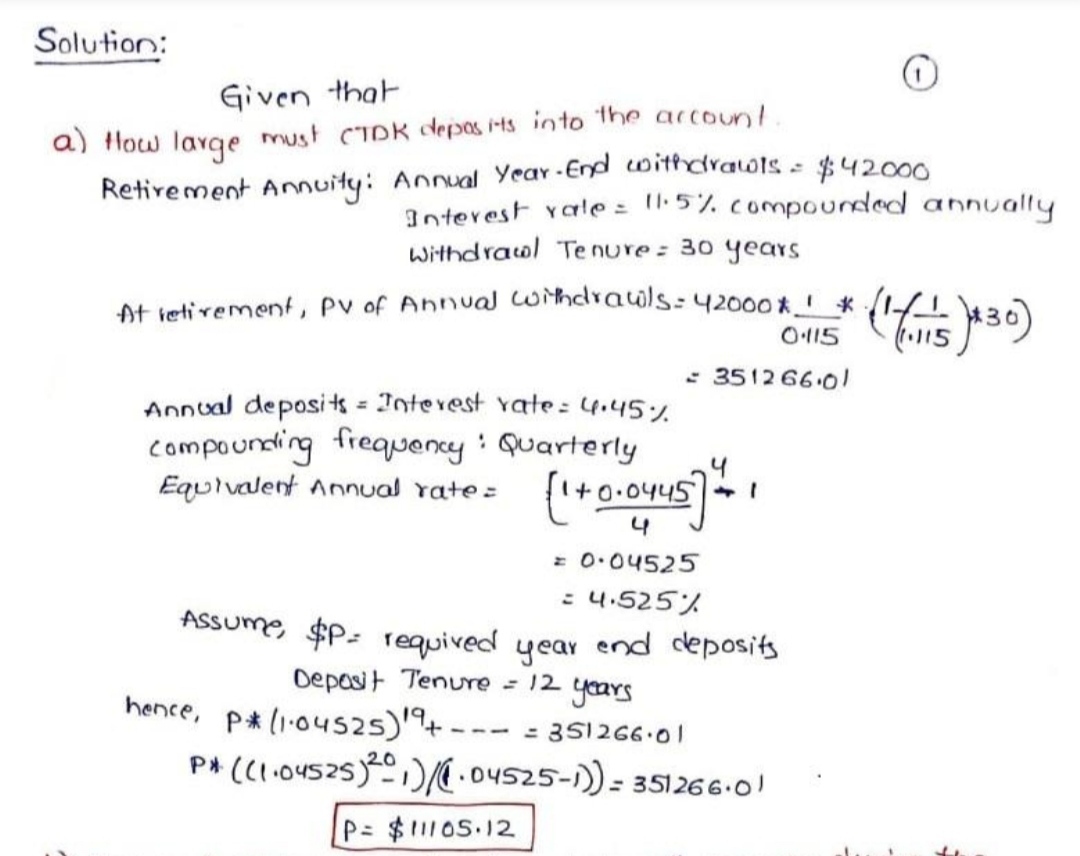 Solution:
1
Given that
a) How large must CTDK deposits into the account.
Retirement Annuity: Annual Year-End withdrawls = $42000
Interest rate = 11.5% compounded annually
Withdrawl Tenure = 30 years
At retirement, PV of Annual withdrawls = 42000 * 1/0.115 * (1-(1/1.115)*30)
= 351266.01
Annual deposits = Interest rate = 4.45%
compounding frequency : Quarterly
Equivalent Annual rate = [1+0.0445/4]^4 - 1
= 0.04525
= 4.525%
Assume, $P = required year end deposits
Deposit Tenure = 12 years
hence, P*(1.04525)^19 + --- = 351266.01
P* (((1.04525)^20-1)/(1.04525-1)) = 351266.01
P = $11105.12